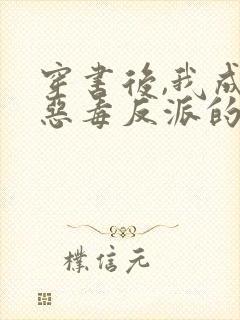 穿書後,我成
惡毒反派的
樸信元